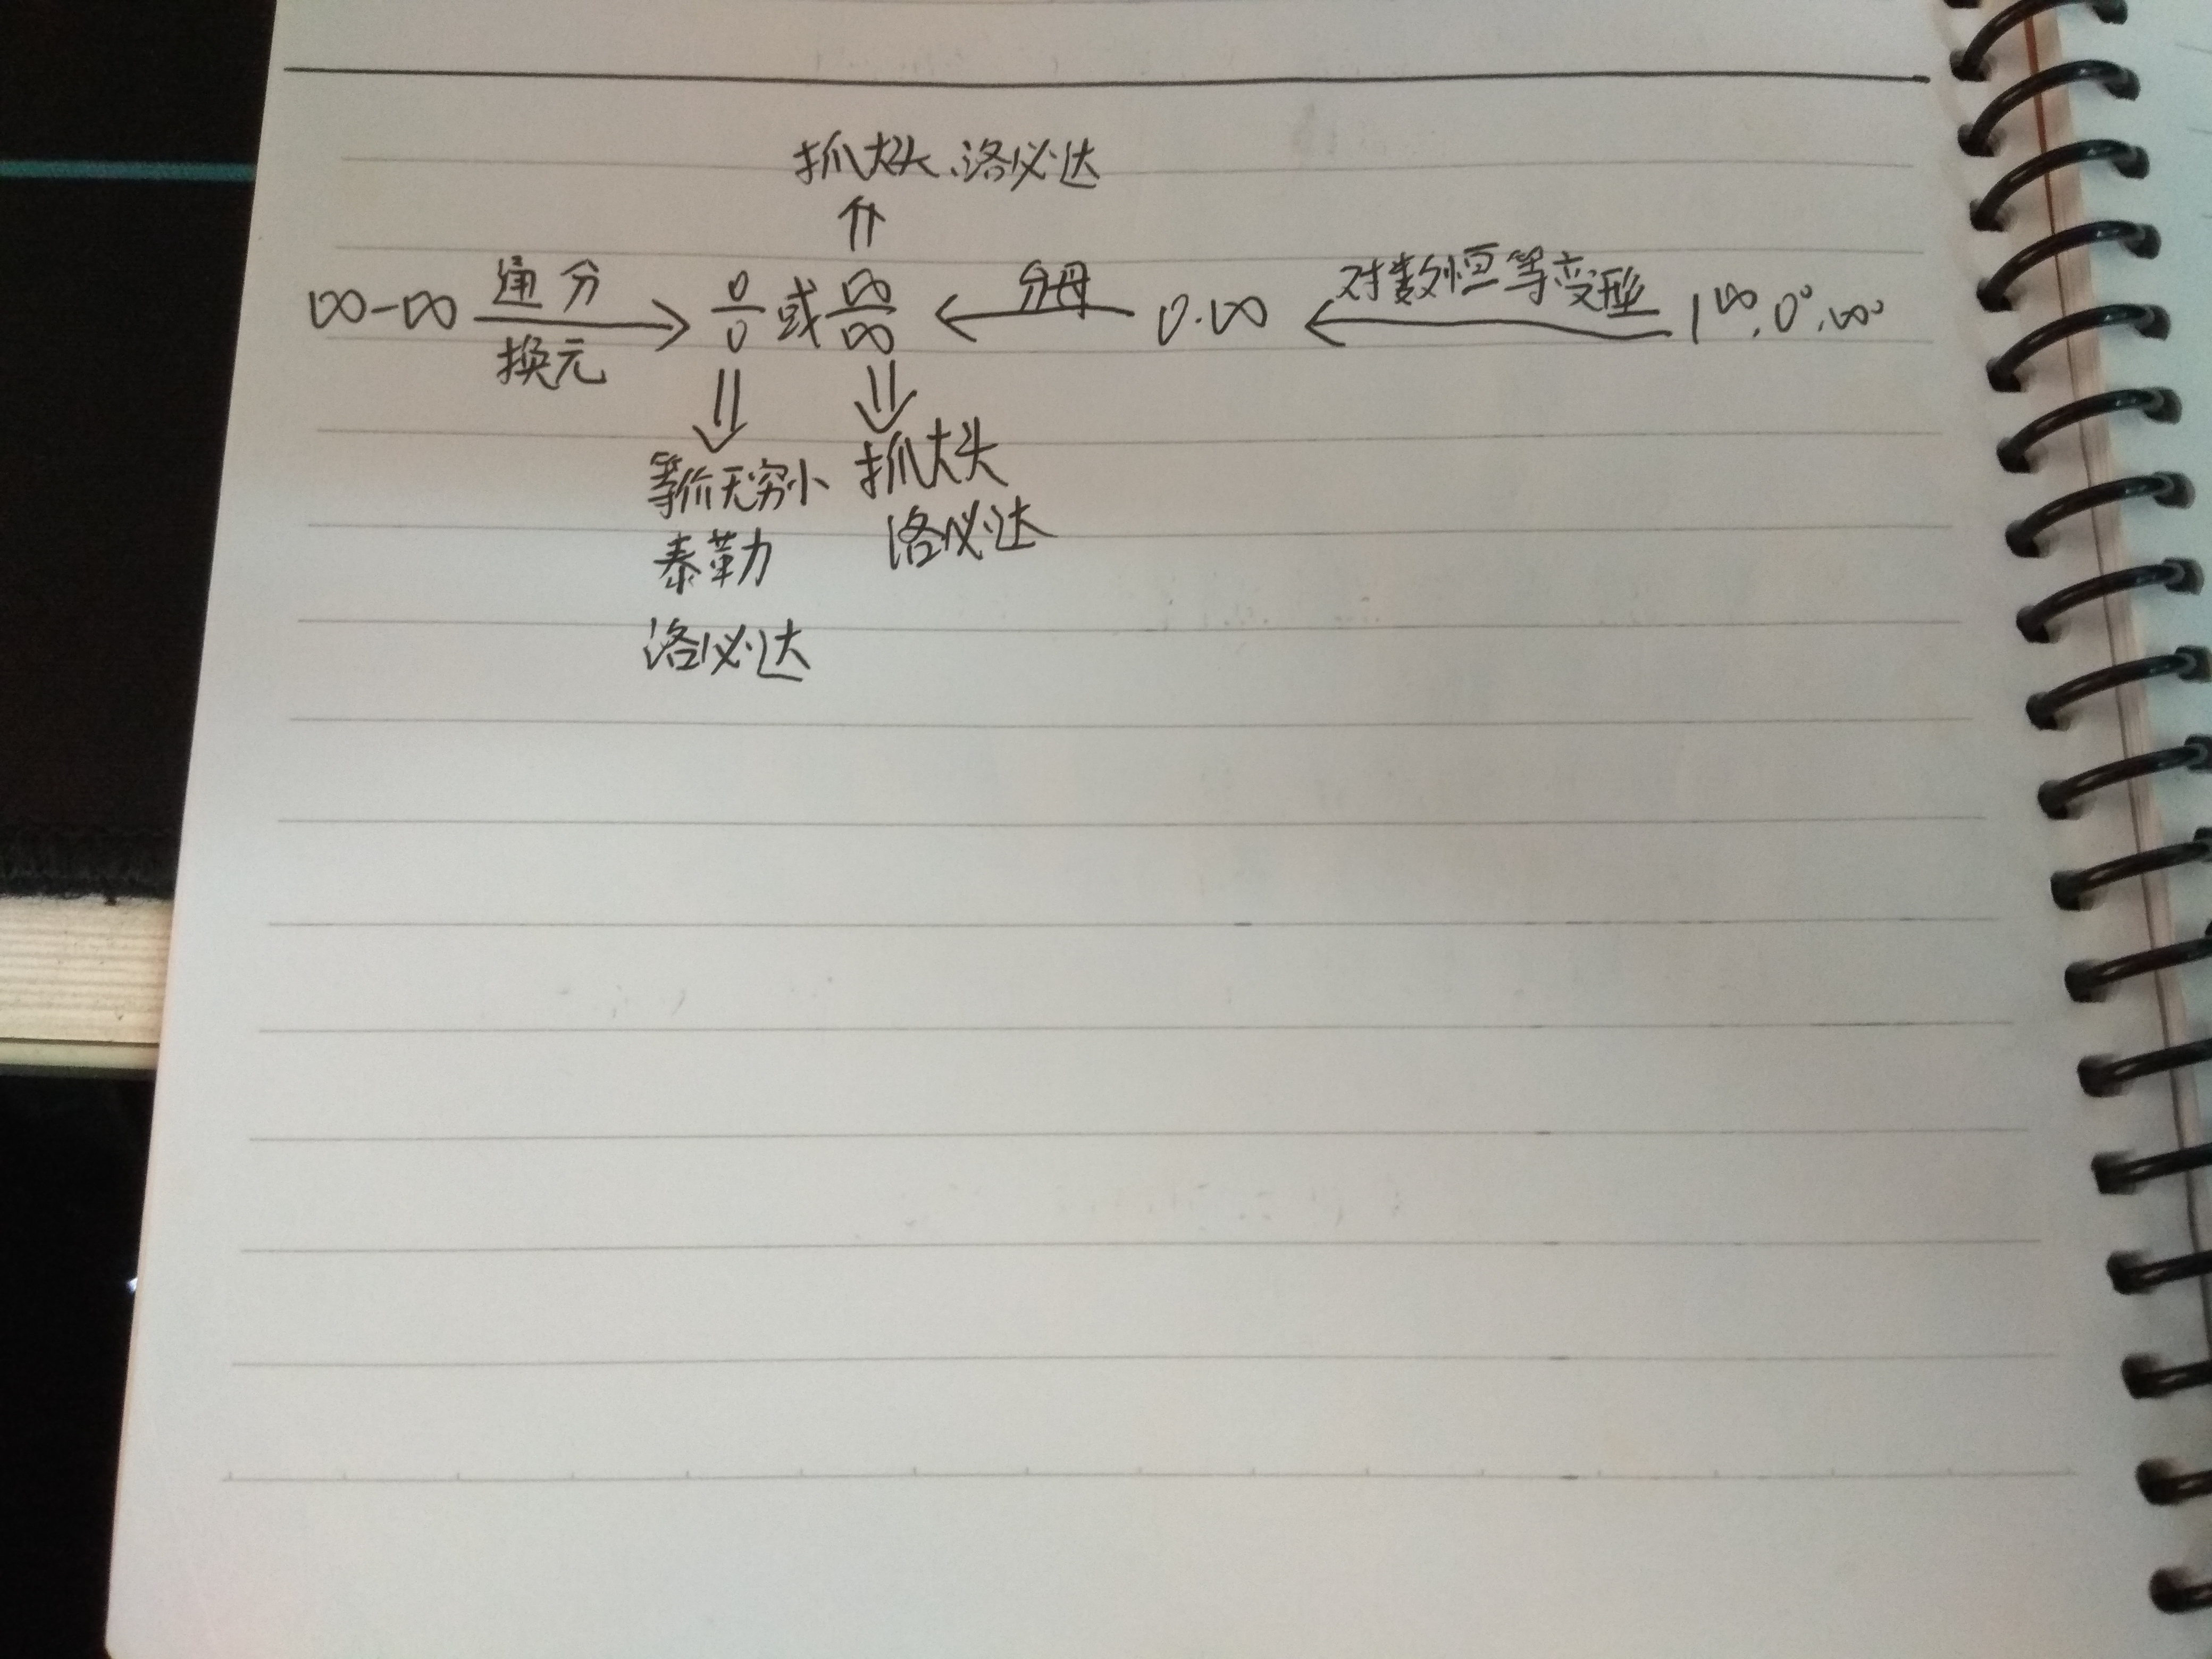 抓大头、洛必达
⇑
∞-∞ 通分 换元 → 0/0 或 ∞/∞ ← 分母 0·∞ ← 对数恒等变形 1^∞, 0^0, ∞^0
⇓ ⇓
等价无穷小 抓大头
泰勒 洛必达
洛必达